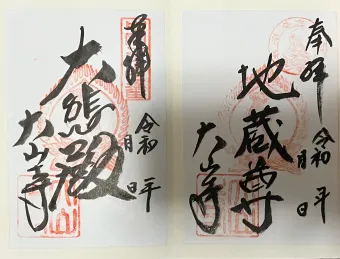 奉拝
令和 年 月 日
地蔵尊
大山寺
奉拝
令和 年 月 日
大悲殿
大山寺